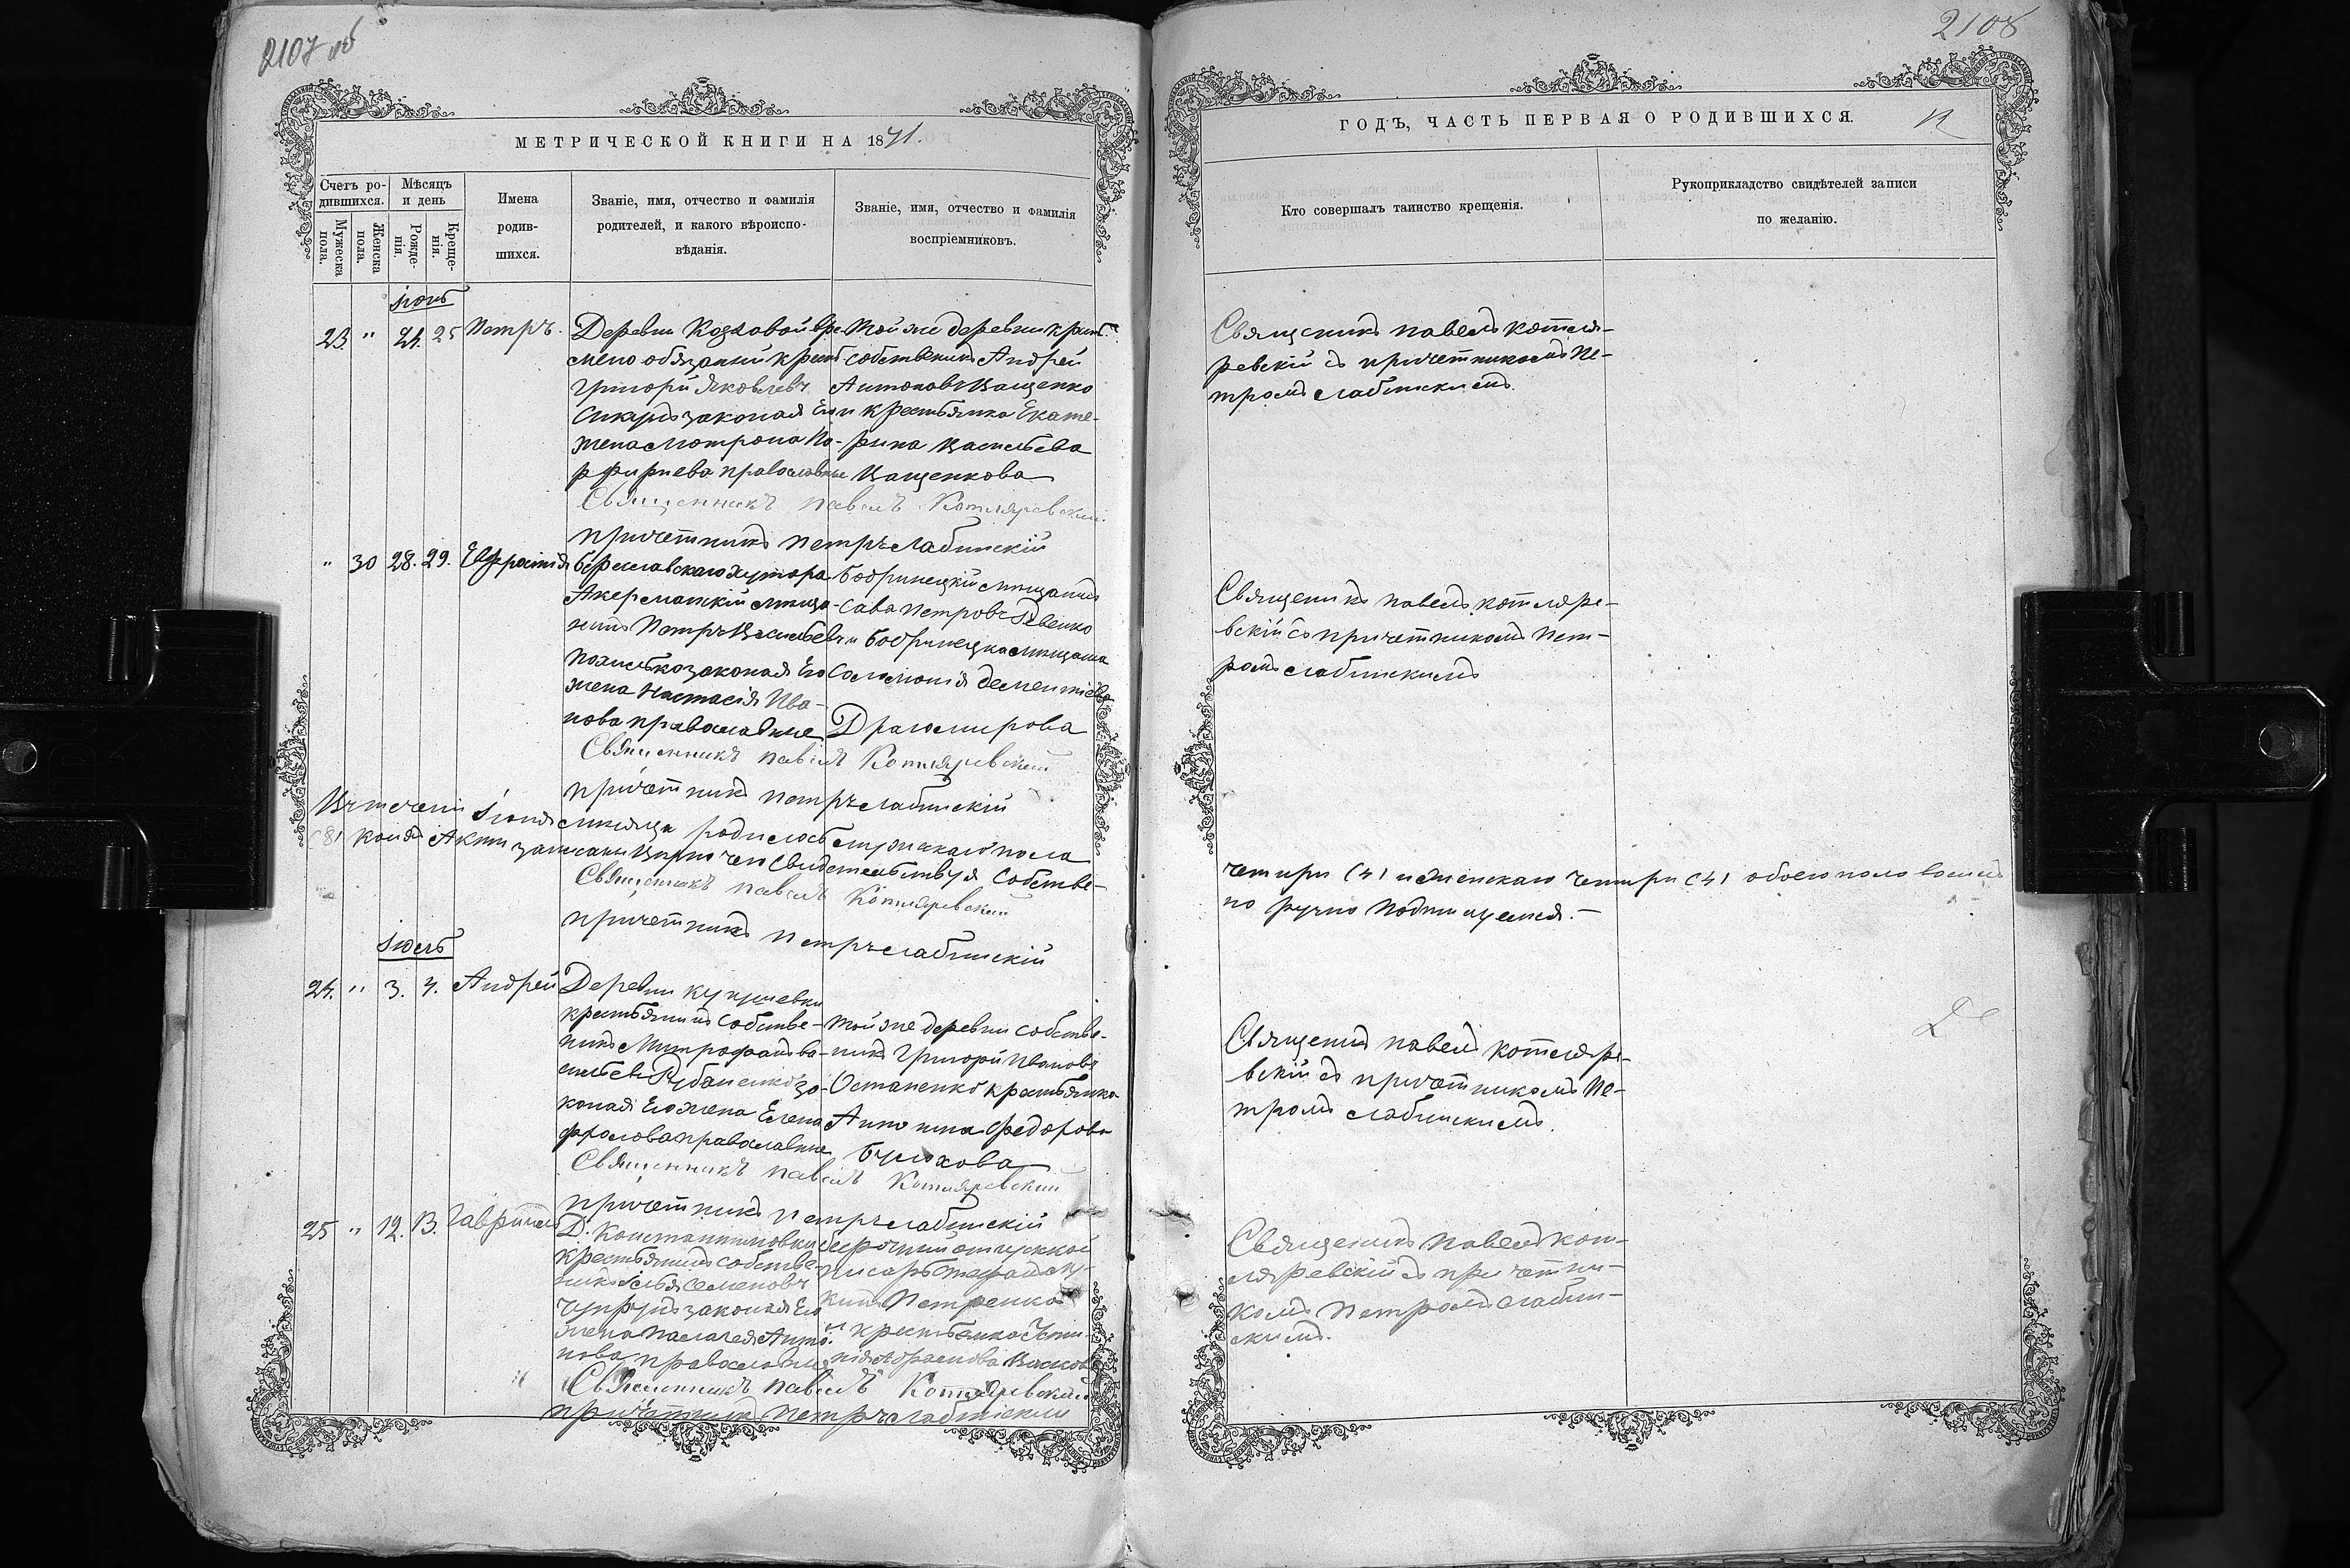 2107 об
МЕТРИЧЕСКОЙ КНИГИ НА 1871.
Счетъ ро-
дившихся.
Мѣсяцъ
и день
Мужеска
пола.
Женска
пола.
Рожде-
нія.
Креще-
нія.
Имена
родив-
шихся.
Званіе, имя, отчество и фамилія
родителей, и какого вѣроиспо-
вѣданія.
Званіе, имя, отчество и фамилія
воспріемниковъ.
Іюнь
23. " 24. 25 Петръ.
Деревни Козловой вре-
мено обязаный крест-
Григорій Яковлевъ
законая Его
жена Мотрона По-
рфиріева православные
Той же деревни крест.
собственикъ Андрей
Антоновъ Ващенко
и крестьянка Екате-
рина Васильева
Ващенкова
Священникъ Павелъ Котляревскій.
Причетникъ Петръ Слабинскій
" 30 28. 29. Евфросинія
Береславскаго Хутора
Акерманскій мѣща-
нинъ Петръ Васильевъ
законая Его
жена Настасія Ива-
нова православные
Бобринецкій мѣщанинъ
Сава Петровъ Ревенко
и Бобринецка мѣщанка
Соломонія Дементіева
Драгомирова
Священникъ Павелъ Котляревскій
Причетникъ Петръ Слабинскій
Въ теченіи Іюня мѣсяца родилось мужскаго пола
(8) коихъ Акты записаны вѣрно чемъ свидетельствуя собстве-
Священникъ Павелъ Котляревскій
Причетникъ Петръ Слабинскій
Іюль
24. " 3. 4. Андрей
Деревни
крестьянинъ собстве-
никъ Митрофанъ Ва-
сильевъ Рубаненко за-
коная Его жена Елена
Фролова православные
Той же деревни собстве-
никъ Григорій Ивановъ
Остапенко крестьянка
Антонина Федорова
Бурлакова
Священникъ Павелъ Котляревскій
Причетникъ Петръ Слабинскій
25 " 12. 13. Гавріилъ
Д. Константиновки
крестьянинъ собстве-
никъ Илья Семеновъ
Чупрунъ законая Его
жена Палагея Анто-
нова православные
безсрочный отпускной
писарь Стефанъ Лу-
кинъ Петренко
и крестьянка Усти-
нія Абрамова
Священникъ Павелъ Котляревскій
Причетникъ Петръ Слабинскій
2108
ГОДЪ, ЧАСТЬ ПЕРВАЯ О РОДИВШИХСЯ.
Кто совершалъ таинство крещенія.
Рукоприкладство свидѣтелей записи
по желанію.
Священикъ Павелъ Котля-
ревскій съ причетникомъ Пе-
тромъ Слабинскимъ.
Священикъ Павелъ Котляре-
вскій съ причетникомъ Пет-
ромъ Слабинскимъ
четири (4) и женскаго четири (4) обоего пола восемь
но ручно подпищемся.-
Священикъ Павелъ Котляре-
вскій съ причетникомъ Пе-
тромъ Слабинскимъ.
Священикъ Павелъ Кот-
ляревскій съ причетни-
комъ Петромъ Слабин-
скимъ.